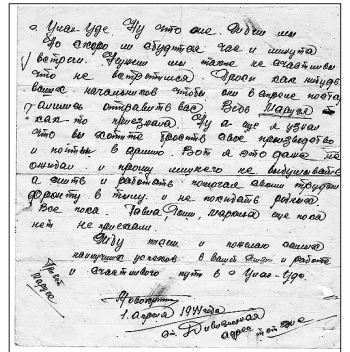 г. Улан-Уде. Ну что же. Видим мы
Но скоро ли сбудется час и минута
встречи. Неужели мы такие не счастливы
что не встретимся. Проси как нибудь
ваших начальников чтобы они в апреле поста
рались отправить вас. Ведь Маруся
как-то приезжала. Ну а ще я узнал
что вы хотите бросить свое производство
и пойти в армию. Вот я это даже не
ожидал и прошу ничего не выдумывать
а жить и работать помогая своим трудом
фронту в тылу. и не покидать родных
Все пока. Паша, маронья еще пока
нет не приехали.
Жду таш и пожелаю самых
наилучших успехов в вашей и работе
и счастливого пути в г Улан-Уде.
Привет
Марусе
1. апреля 1944 года
ст. Дивизионная
адрес тот же